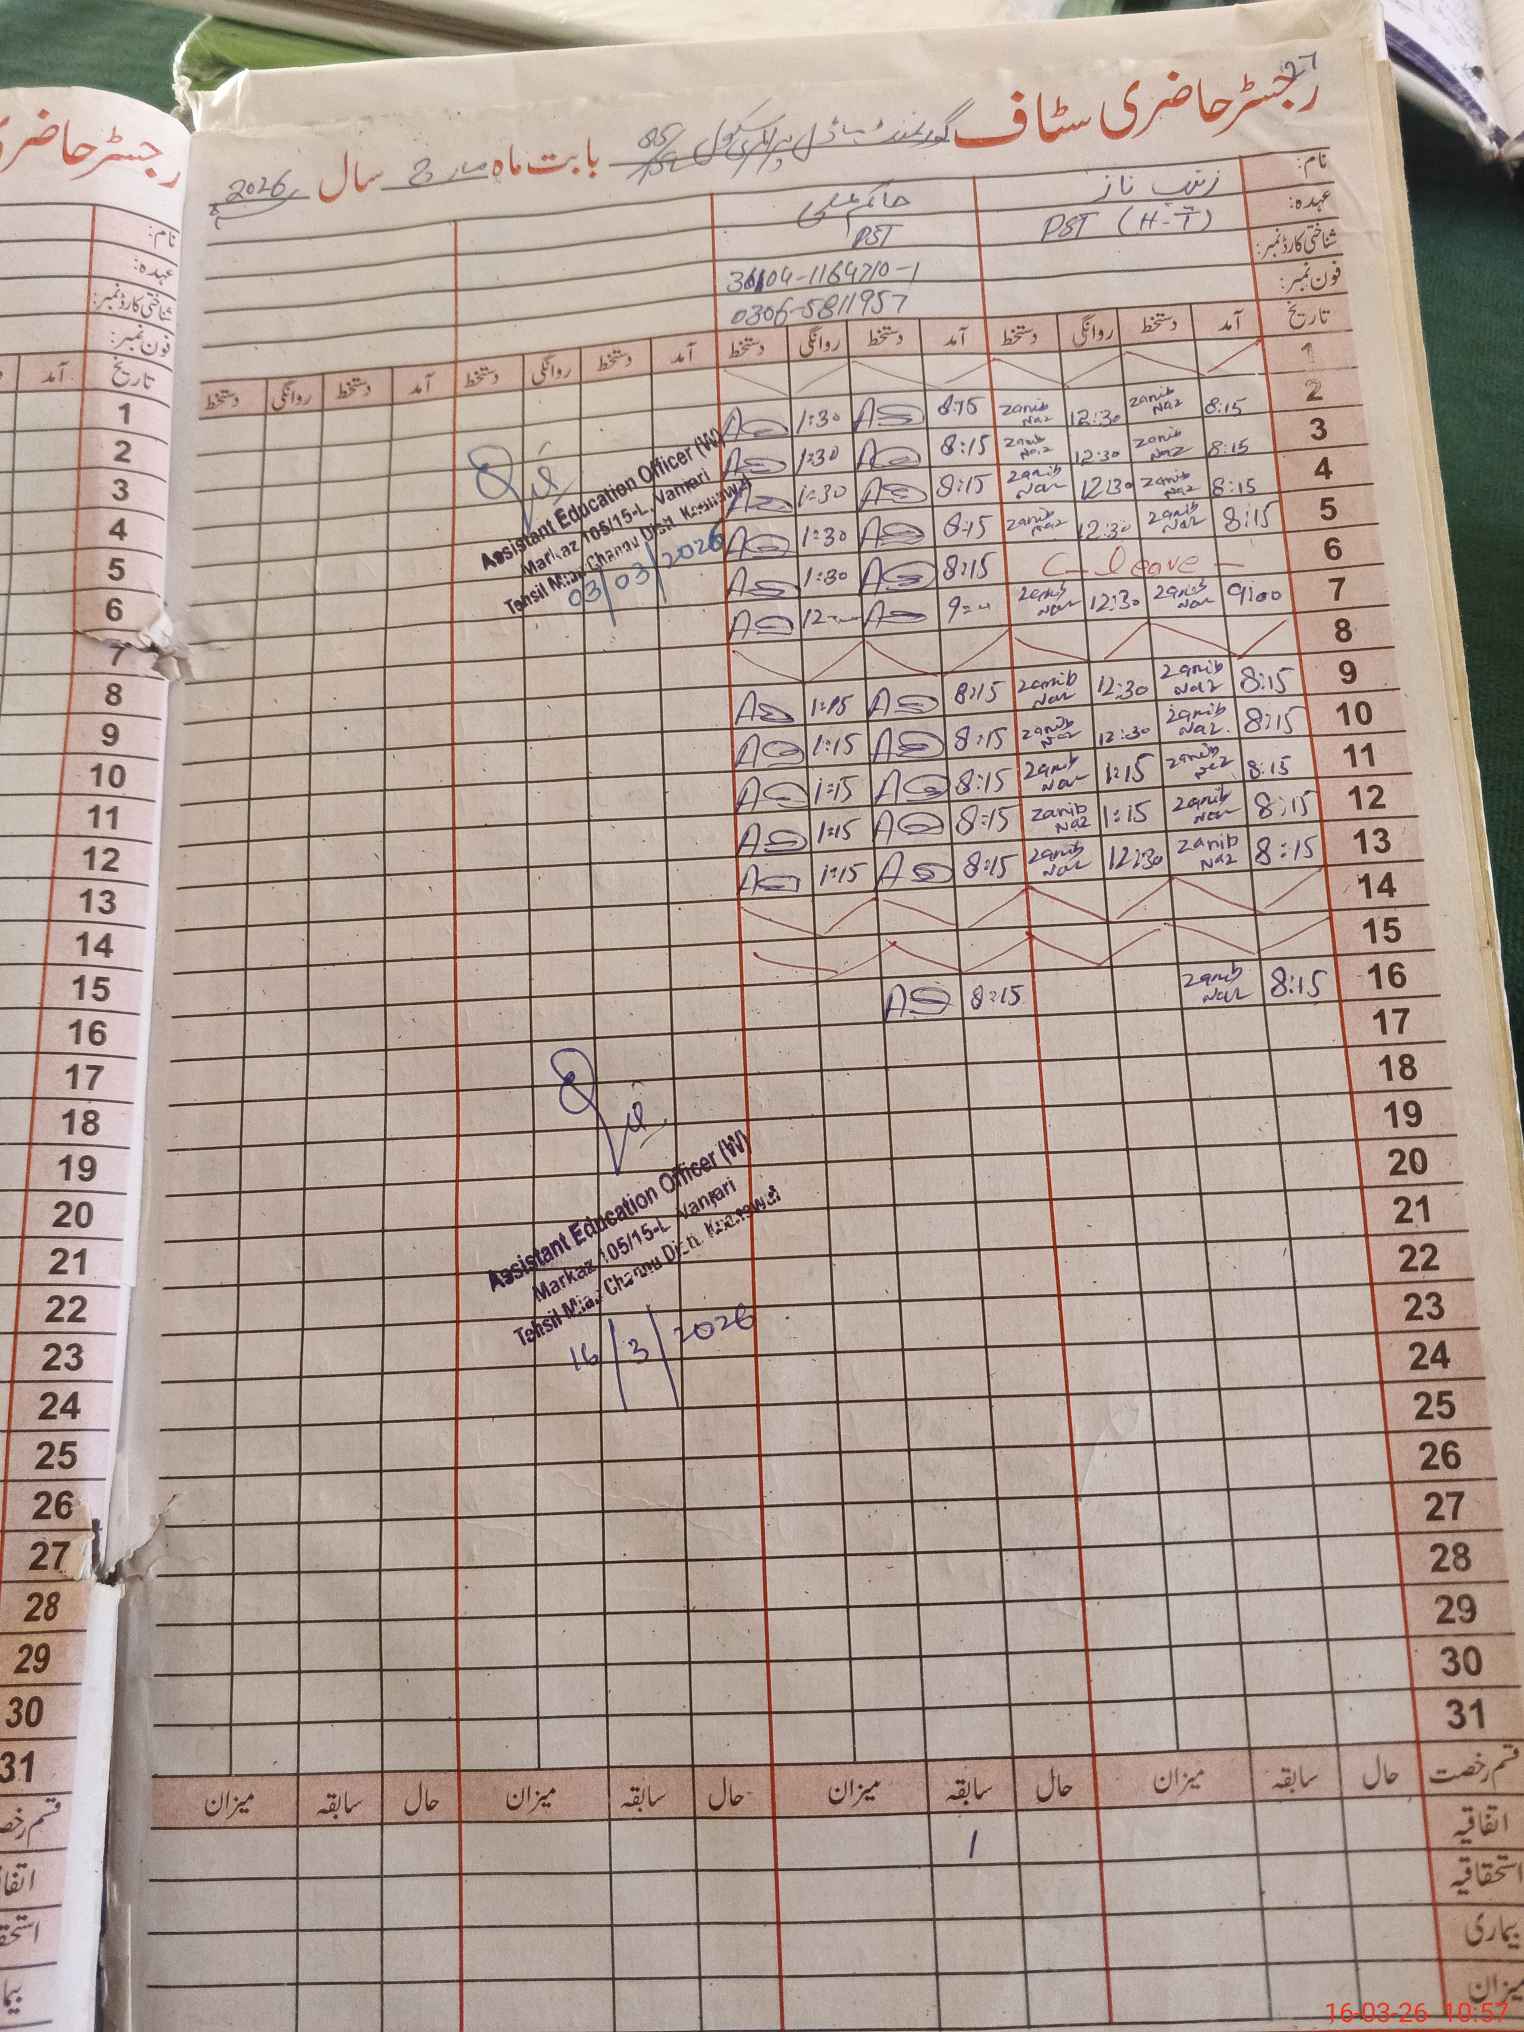 27
رجسٹر حاضری سٹاف گورنمنٹ ماڈل پرائمری سکول بابت ماہ مارچ سال 2026
نام: زینب ناز
عہدہ: PST (H-T) PST
شناختی کارڈ نمبر: 36104-1164710-1
فون نمبر: 0306-5811957
تاریخ آمد دستخط روانگی دستخط آمد دستخط روانگی دستخط آمد دستخط روانگی دستخط آمد دستخط روانگی دستخط
1
2 8:15 Zanib Naz 12:30 Zanib Naz 8:15 1:30
3 8:15 Zanib Naz 12:30 Zanib Naz 8:15 1:30
4 8:15 Zanib Naz 12:30 Zanib Naz 8:15 1:30
5 8:15 Zanib Naz 12:30 Zanib Naz 8:15 1:30
6 C- leave - 8:15 1:30
7 9:00 Zanib Naz 12:30 Zanib Naz
8
9 8:15 Zanib Naz 12:30 Zanib Naz 8:15 1:15
10 8:15 Zanib Naz 12:30 Zanib Naz 8:15 1:15
11 8:15 Zanib Naz 1:15 Zanib Naz 8:15 1:15
12 8:15 Zanib Naz 1:15 Zanib Naz 8:15 1:15
13 8:15 Zanib Naz 12:30 Zanib Naz 8:15 1:15
14
15
16 8:15 Zanib Naz 8:15
17
18
19
20
21
22
23
24
25
26
27
28
29
30
31
Assistant Education Officer (W)
Markaz 105/15-L, Vanjari
Tehsil Mian Channu Distt. Khanewal
03/03/2026
Assistant Education Officer (W)
Markaz 105/15-L, Vanjari
Tehsil Mian Channu Distt. Khanewal
16/3/2026
قسم رخصت حال سابقہ میزان حال سابقہ میزان حال سابقہ میزان حال سابقہ میزان
اتفاقیہ 1
استحقاقیہ
بیماری
میزان
رجسٹر حاضری
نام:
عہدہ:
شناختی کارڈ نمبر:
فون نمبر:
تاریخ آمد
1
2
3
4
5
6
7
8
9
10
11
12
13
14
15
16
17
18
19
20
21
22
23
24
25
26
27
28
29
30
31
16-03-26 10:57